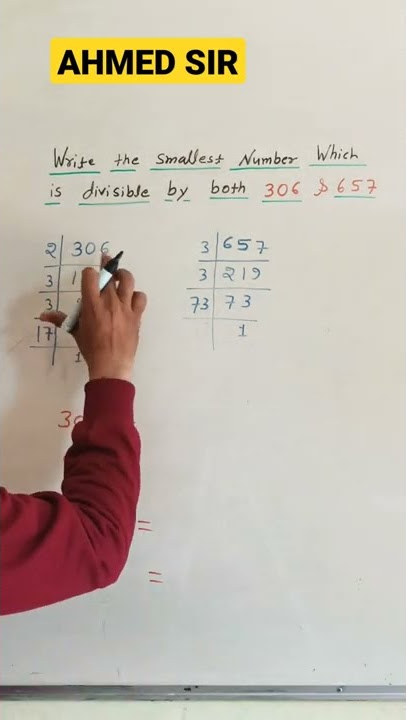 AHMED SIR
Write the smallest Number Which
is divisible by both 306 & 657
2 306
3 1
3
17
1
3 657
3 219
73 73
1
=
=